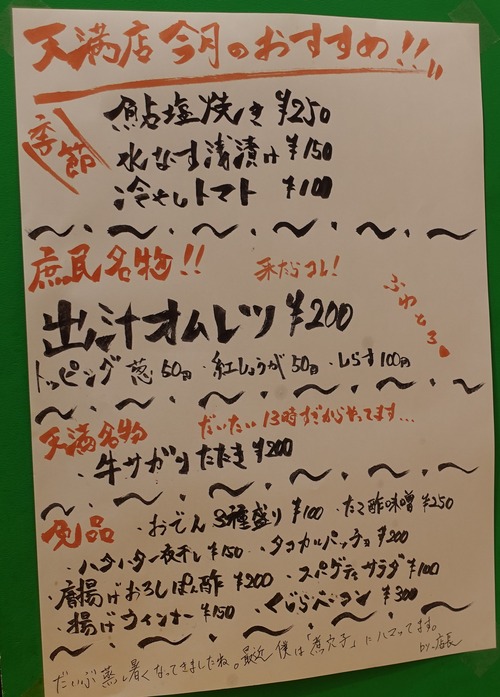 天満店 今月のおすすめ!!
季節
鮎塩焼き ¥250
水なす浅漬け ¥150
冷やしトマト ¥100
庶民名物!! 来たらコレ!
ふわとろ
出汁オムレツ ¥200
トッピング 葱50円・紅しょうが50円・しらす100円
天満名物 だいたい13時すぎからやってます...
・牛サガリたたき ¥200
逸品 ・おでん3種盛り ¥100 ・たこ酢味噌 ¥250
・ハタハタ一夜干し ¥150 ・タコカルパッチョ ¥200
・唐揚げおろしぽん酢 ¥200 ・スパゲティサラダ ¥100
・揚げウィンナー ¥150 ・くじらベーコン ¥300
だいぶ蒸し暑くなってきましたね。最近僕は「煮穴子」にハマッてます。
by.店長